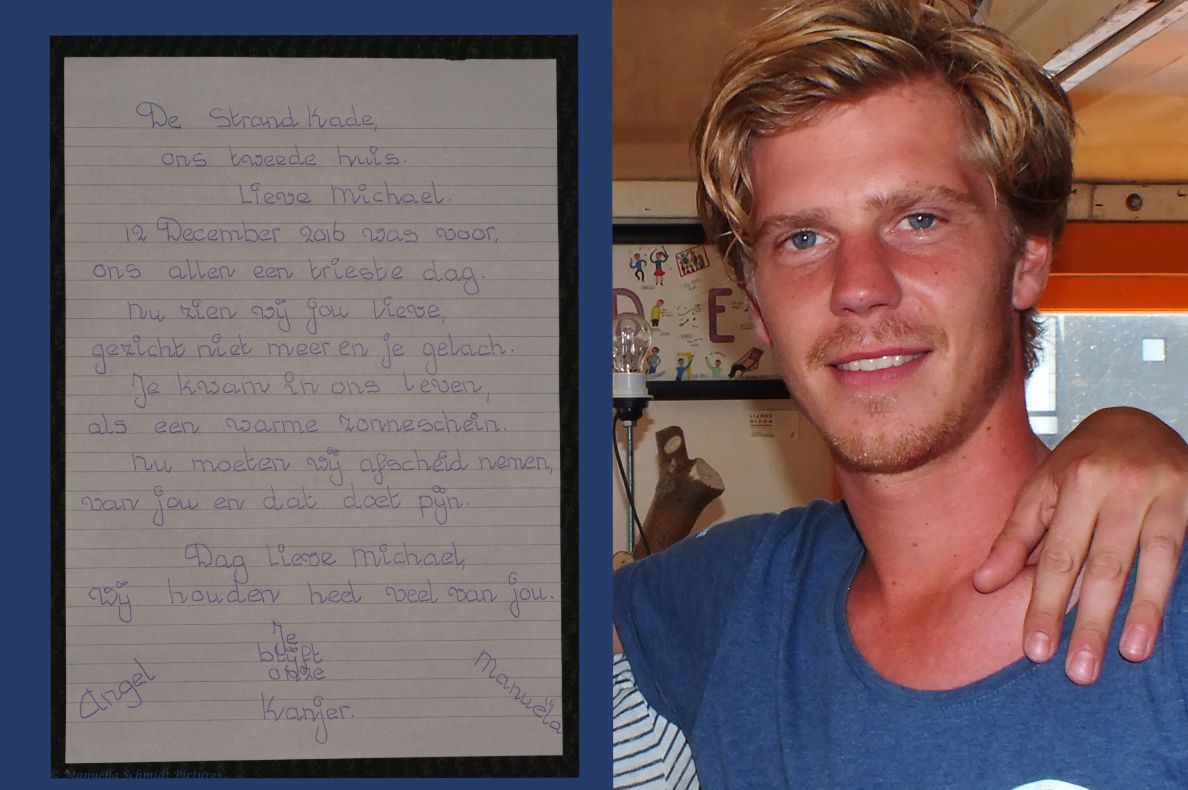 De Strand Kade,
ons tweede huis.
Lieve Michael.
12 December 2016 was voor,
ons allen een trieste dag.
Nu zien wij jou lieve,
gezicht niet meer en je gelach.
Je kwam in ons leven,
als een warme zonneschein.
Nu moeten wij afscheid nemen,
van jou en dat doet pijn.
Dag Lieve Michael,
wij houden heel veel van jou.
Je
blijft
onze
Kanjer.
Angel
Manuëla
© Manuëlla Schmidt Pictures
D E